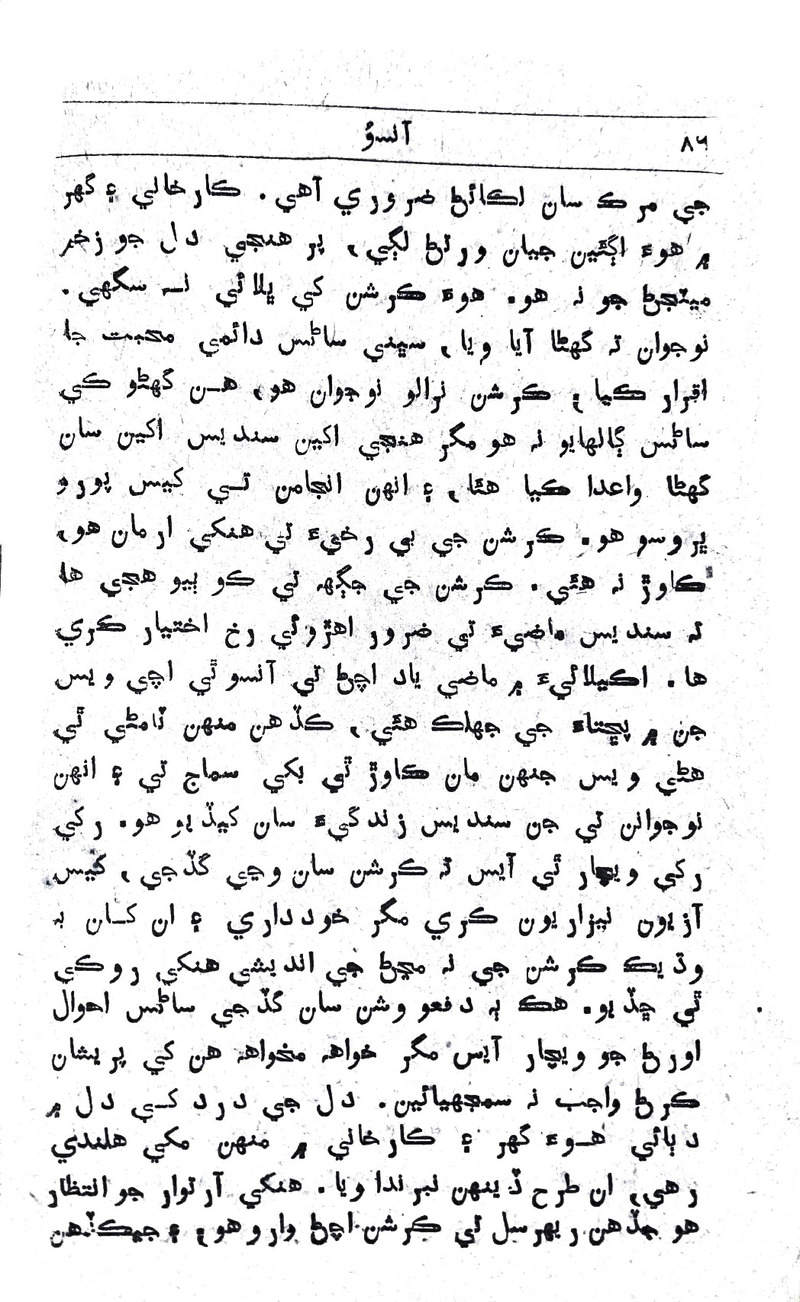 آنسوُ
٨٦
جي مرڪ سان لڪائڻ ضروري آهي. ڪارخاني ۽ گهر
۾ هوءَ اڳئين جيان ورتڻ لڳي، پر هنجي دل جو زخم
ميٽجڻ جو نہ هو. هوءَ ڪرشن کي ڀلائي نہ سگهي.
نوجوان تہ گهڻا آيا ويا، سڀني ساڻس دائمي محبت جا
اقرار ڪيا ۽ ڪرشن نرالو نوجوان هو، هن گهڻو ڪي
ساڻس ڳالهايو نہ هو مگر هنجي اکين سنديس اکين سان
گهڻا واعدا ڪيا هئا، ۽ انهن انجامن تي کيس پورو
ڀروسو هو. ڪرشن جي بي رخيءَ تي هنکي ارمان هو،
ڪاوڙ نہ هئي. ڪرشن جي جڳهہ تي ڪو ٻيو هجي ها
تہ سنديس ماضيءَ تي ضرور اهڙوئي رخ اختيار ڪري
ها. اڪيلائيءَ ۾ ماضي ياد اچڻ تي آنسو ٿي اچي ويس
جن ۾ پڇتاءَ جي جهلڪ هئي، ڪڏهن منهن ٽامڻي ٿي
هڻي ويس جنهن مان ڪاوڙ ٿي بکي سماج تي ۽ انهن
نوجوانن تي جن سنديس زندگيءَ سان کيڏيو هو. رکي
رکي ويچار ٿي آيس تہ ڪرشن سان وڃي گڏجي، کيس
آزيون نيزاريون ڪري مگر خودداري ۽ ان کان بہ
وڌيڪ ڪرشن جي نہ مڃڻ جي انديشي هنکي روڪي
ٿي ڇڏيو. هڪ ٻہ دفعو وشن سان گڏجي ساڻس احوال
اورڻ جو ويچار آيس مگر خواهہ مخواهہ هن کي پريشان
ڪرڻ واجب نہ سمجهيائين. دل جي درد کي دل ۾
دٻائي هوءَ گهر ۽ ڪارخاني ۾ منهن مکي هلندي
رهي، ان طرح ڏينهن نبرندا ويا. هنکي آرتوار جو انتظار
هو جڏهن ريهرسل تي ڪرشن اچڻ وارو هو، ۽ جيڪڏهن